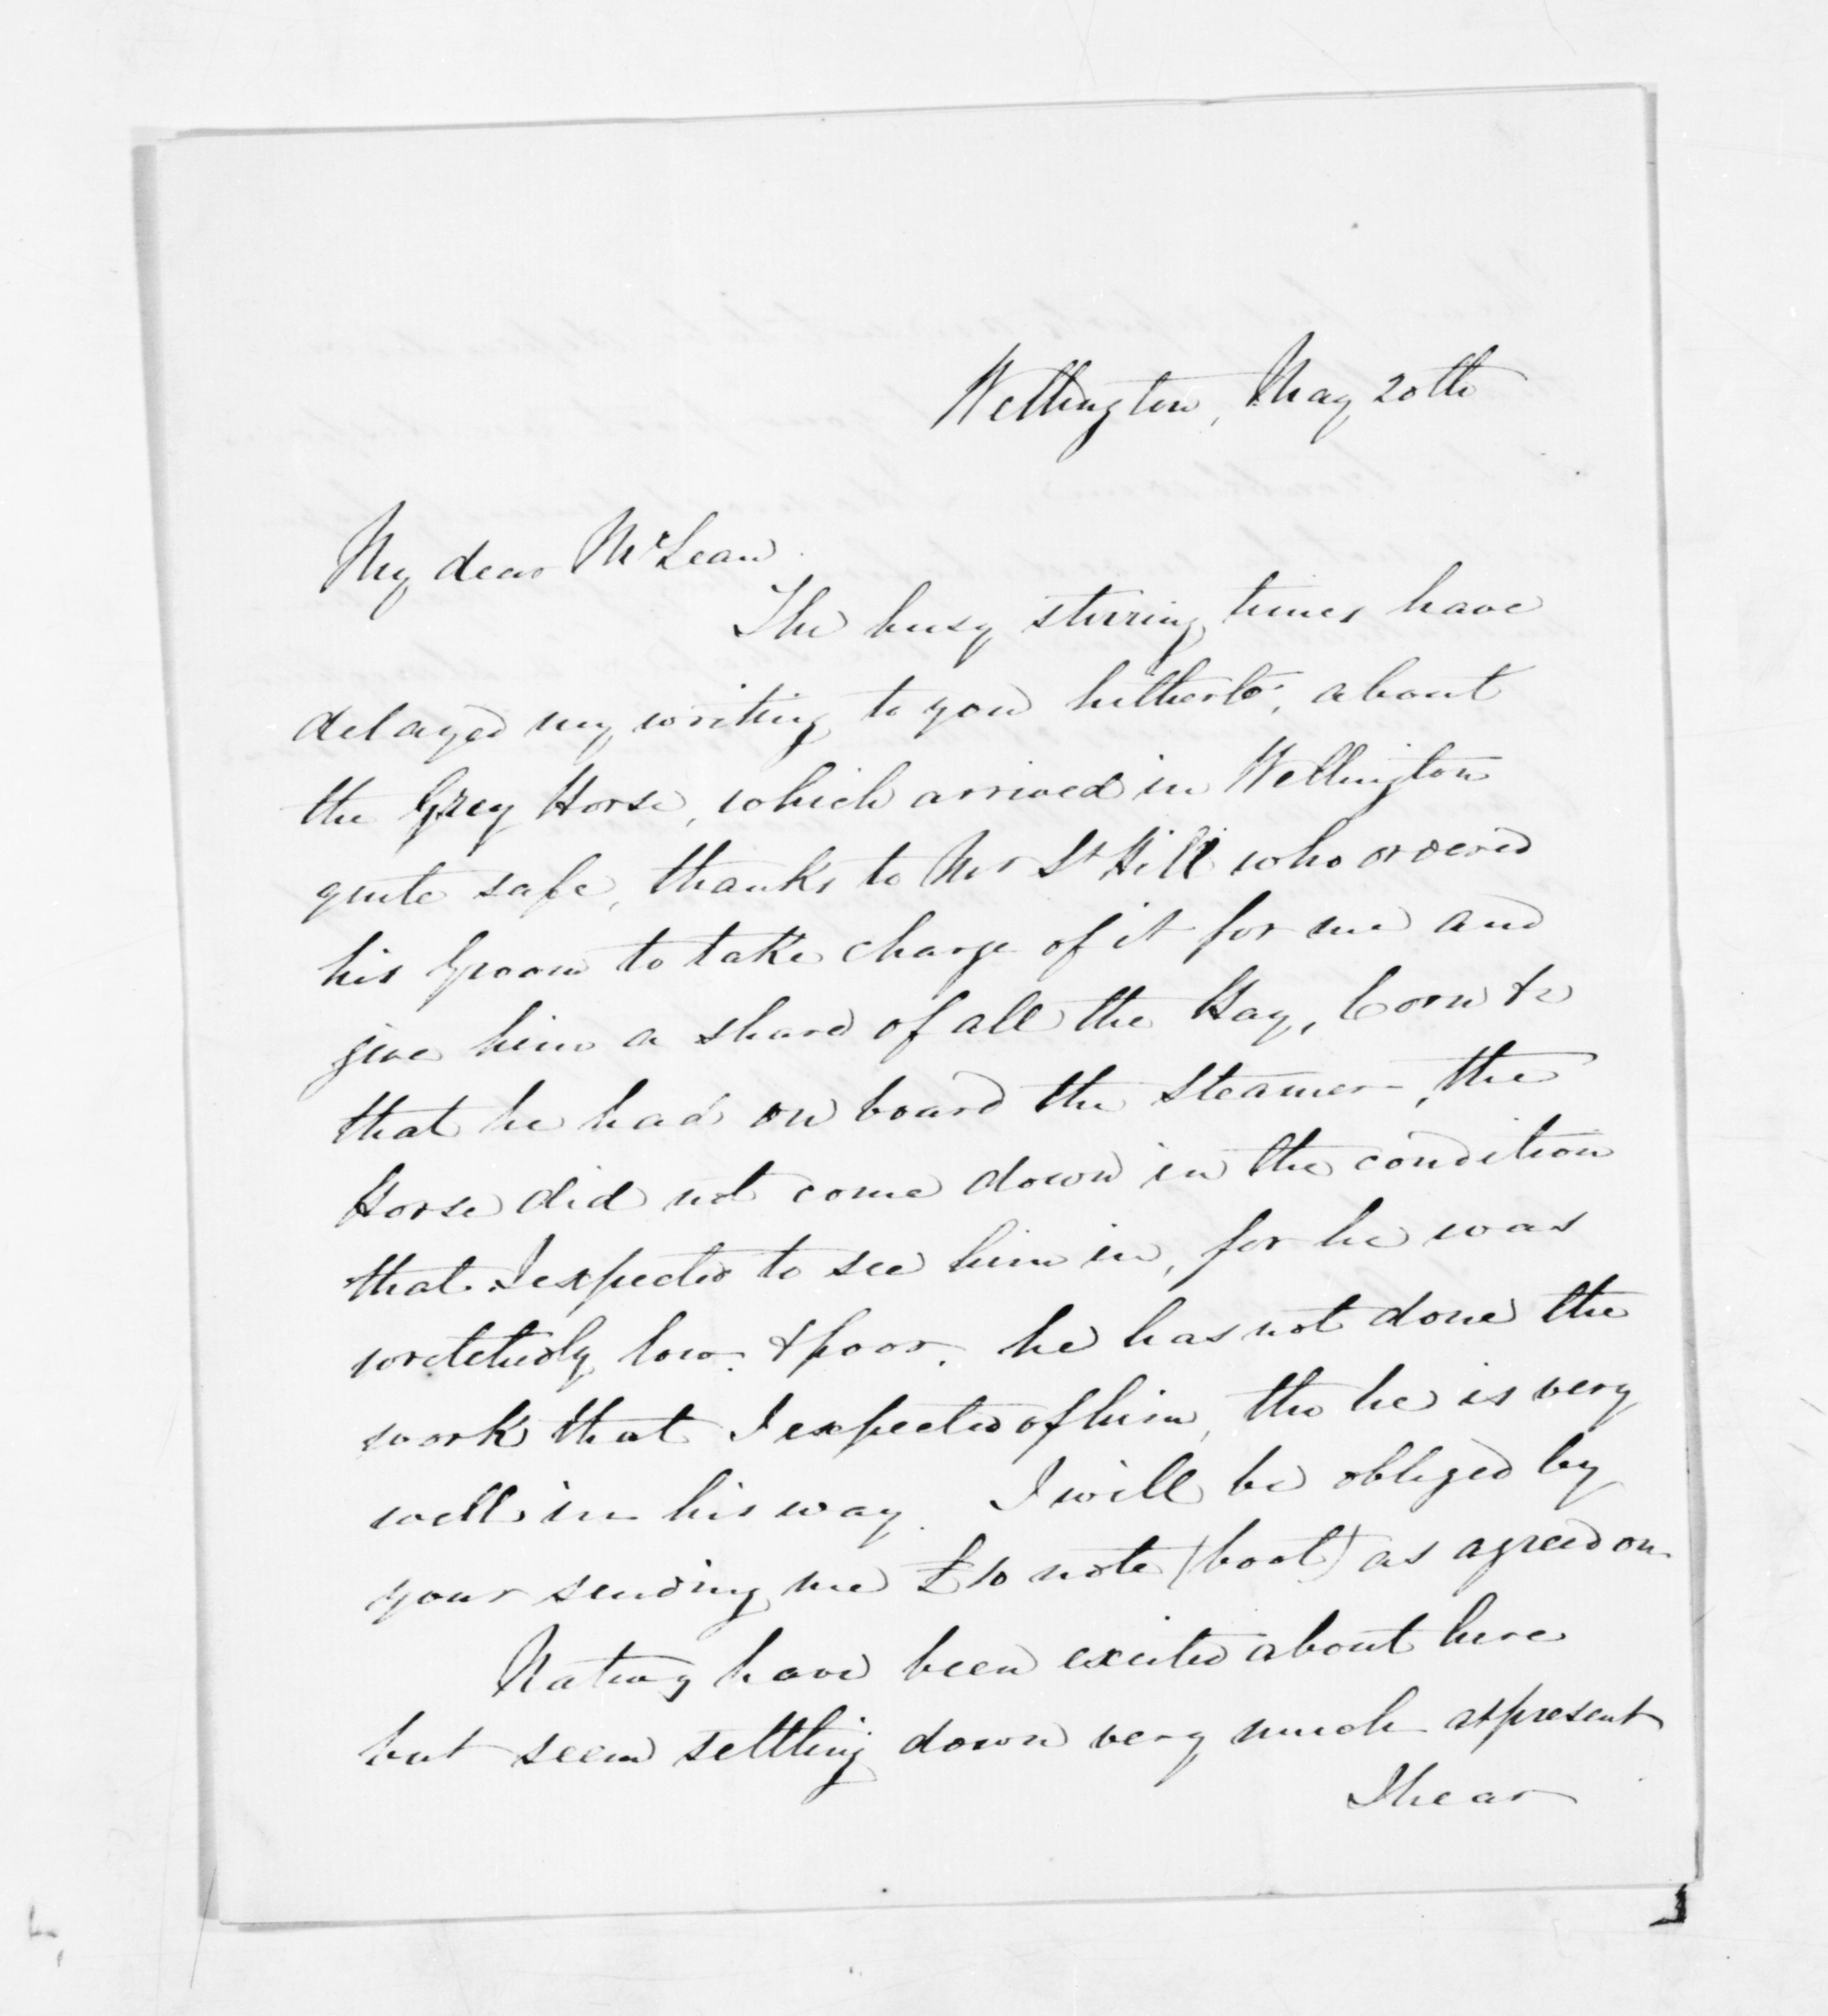 Wellington, May 20th
My dear McLean
The busy stirring times have
delayed my writing to you hitherto, about
the Grey Horse, which arrived in Wellington
quite safe, thanks to Mr St Hill who ordered
his Groom to take charge of it for me and
give him a share of all the Hay, Corn &c
that he had on board the Steamer, the
Horse did not come down in the condition
that I expected to see him in, for he was
wretchedly low & poor. he has not done the
work that I expected of him, tho he is very
well in his way. I will be obliged by
your sending me £10 note (boot) as agreed on
Natives have been excited about here
but seem settling down very much at present
I hear